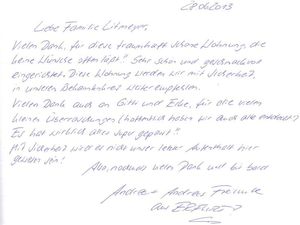 Liebe Familie Litmeyer,
Vielen Dank, für diese traumhaft schöne Wohnung, die
keine Wünsche offen läßt! Sehr schön und geschmackvoll
eingerichtet. Diese Wohnung werden wir mit Sicherheit,
in unserem Bekanntenkreis weiter empfehlen.
Vielen Dank auch an Gitti und Elke, für die vielen
kleinen Überraschungen (hoffentlich haben wir auch alle entdeckt?)
Es hat wirklich alles super gepasst!!
Mit Sicherheit wird es nicht unser letzter Aufenthalt hier
gewesen sein!
Also, nochmals vielen Dank und bis bald
Andrea + Andreas
aus